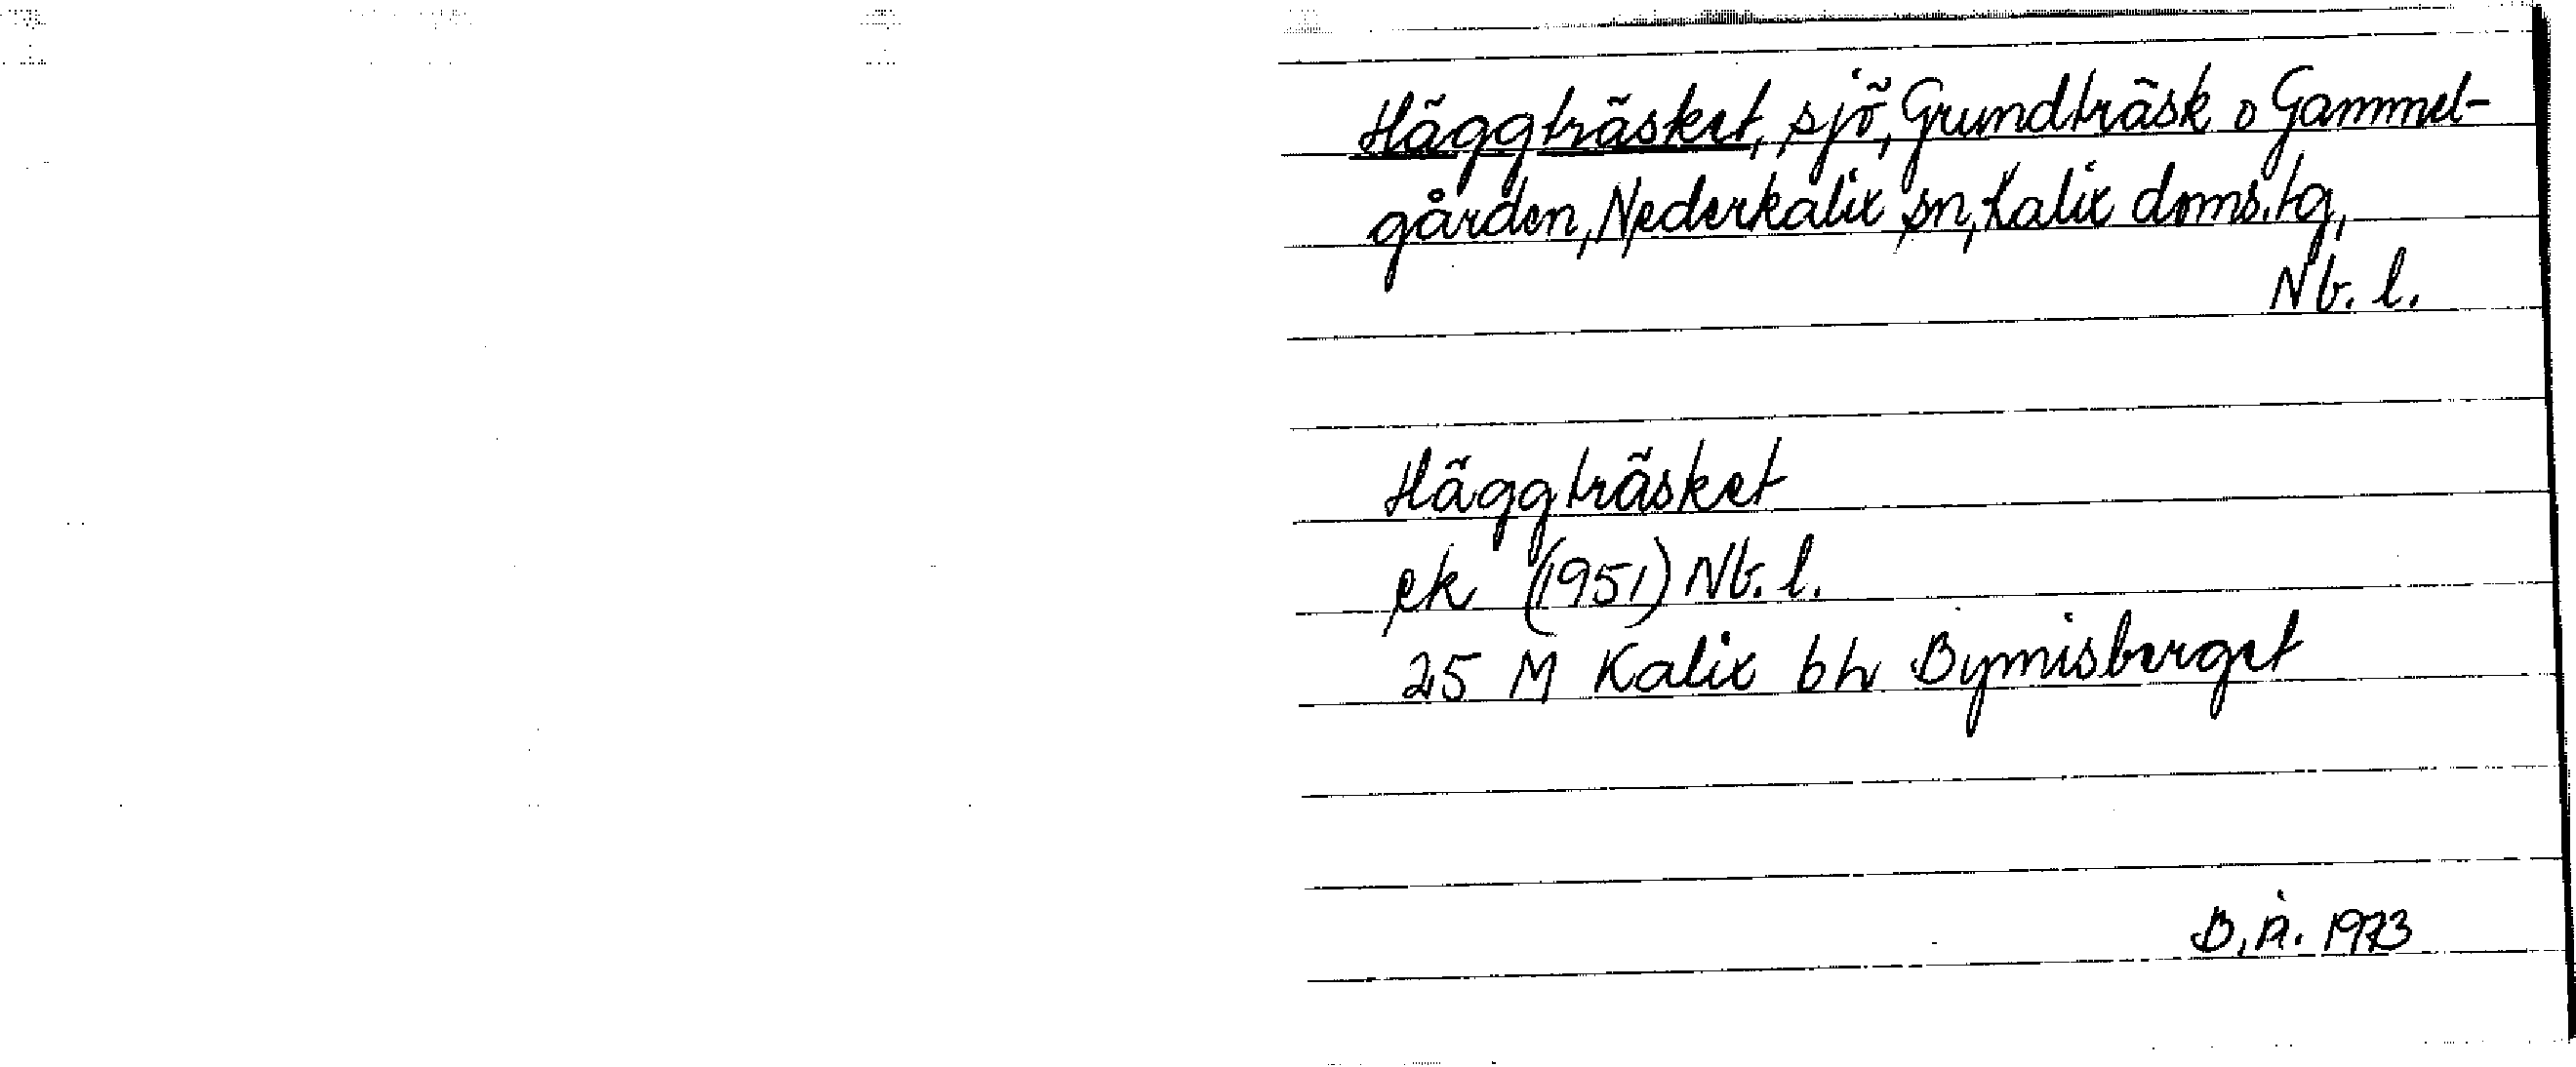 Häggträsket, sjö, Grundträsk o Gammel-
gården, Nederkalix sn, Kalix doms. tg,
Nb. l.
Häggträsket
ek (1951) Nb. l.
25 M Kalix bh Bymisberget
B. Å. 1973